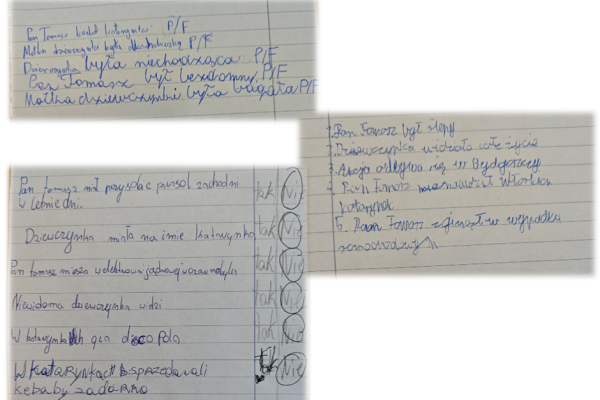 Pan Tomasz kochał katarynki P/F
Matka dziewczynki była P/F
Dziewczynka była niechodząca P/F
Pan Tomasz był bezdomny. P/F
Matka dziewczynki była bogata P/F
1. Pan Tomasz był ślepy
2. Dziewczynka widziała całe życie
3. Akcja odbywa się w Bydgoszczy
4. Pan Tomasz
katarynek
5. Pan Tomasz zginął w wypadku
samochodowym
Pan tomasz miał parasol zachodni
w letnie dni. tak Nie
Dziewczynka miała na imie katarynka tak Nie
Pan tomasz mieszka tak Nie
Niewidoma dziewczynka widzi tak Nie
W katarynkach gra disco polo tak Nie
W KatARYNKACH SPRZEDAWALI tak Nie
kebaby za darmo